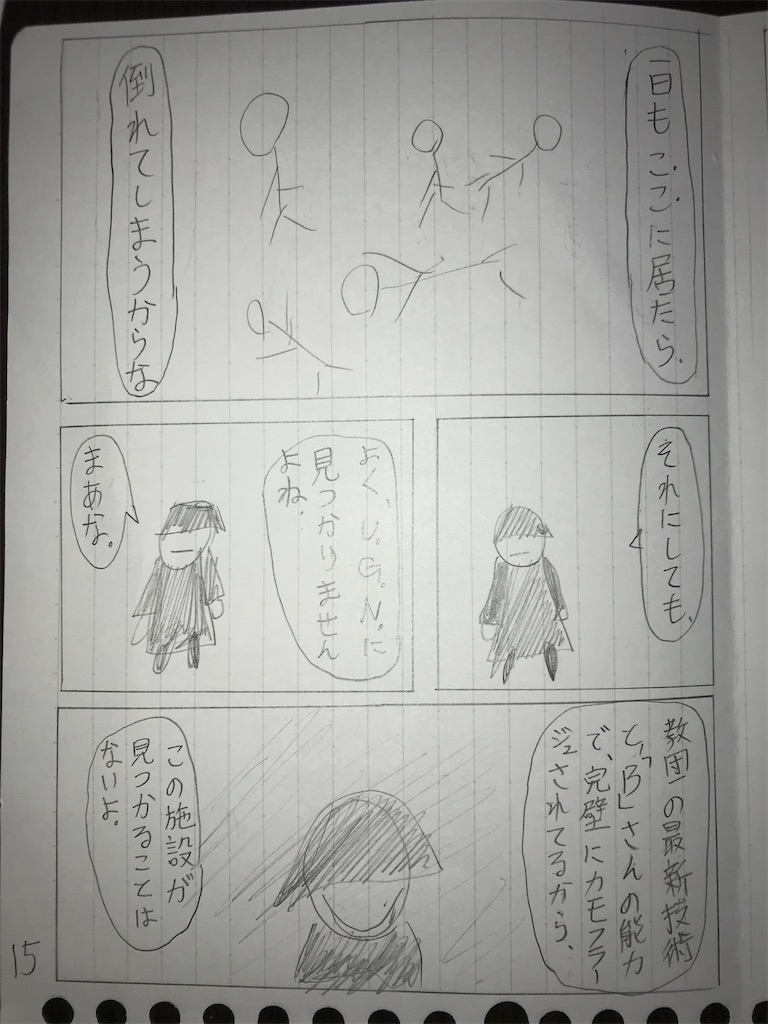 一日もここに居たら、
倒れてしまうからな
それにしても、
よく、U.G.N.に
見つかりません
よね。
まあな。
教団の最新技術
と、「B」さんの能力
で、完璧にカモフラー
ジュされてるから、
この施設が
見つかることは
ないよ。
15